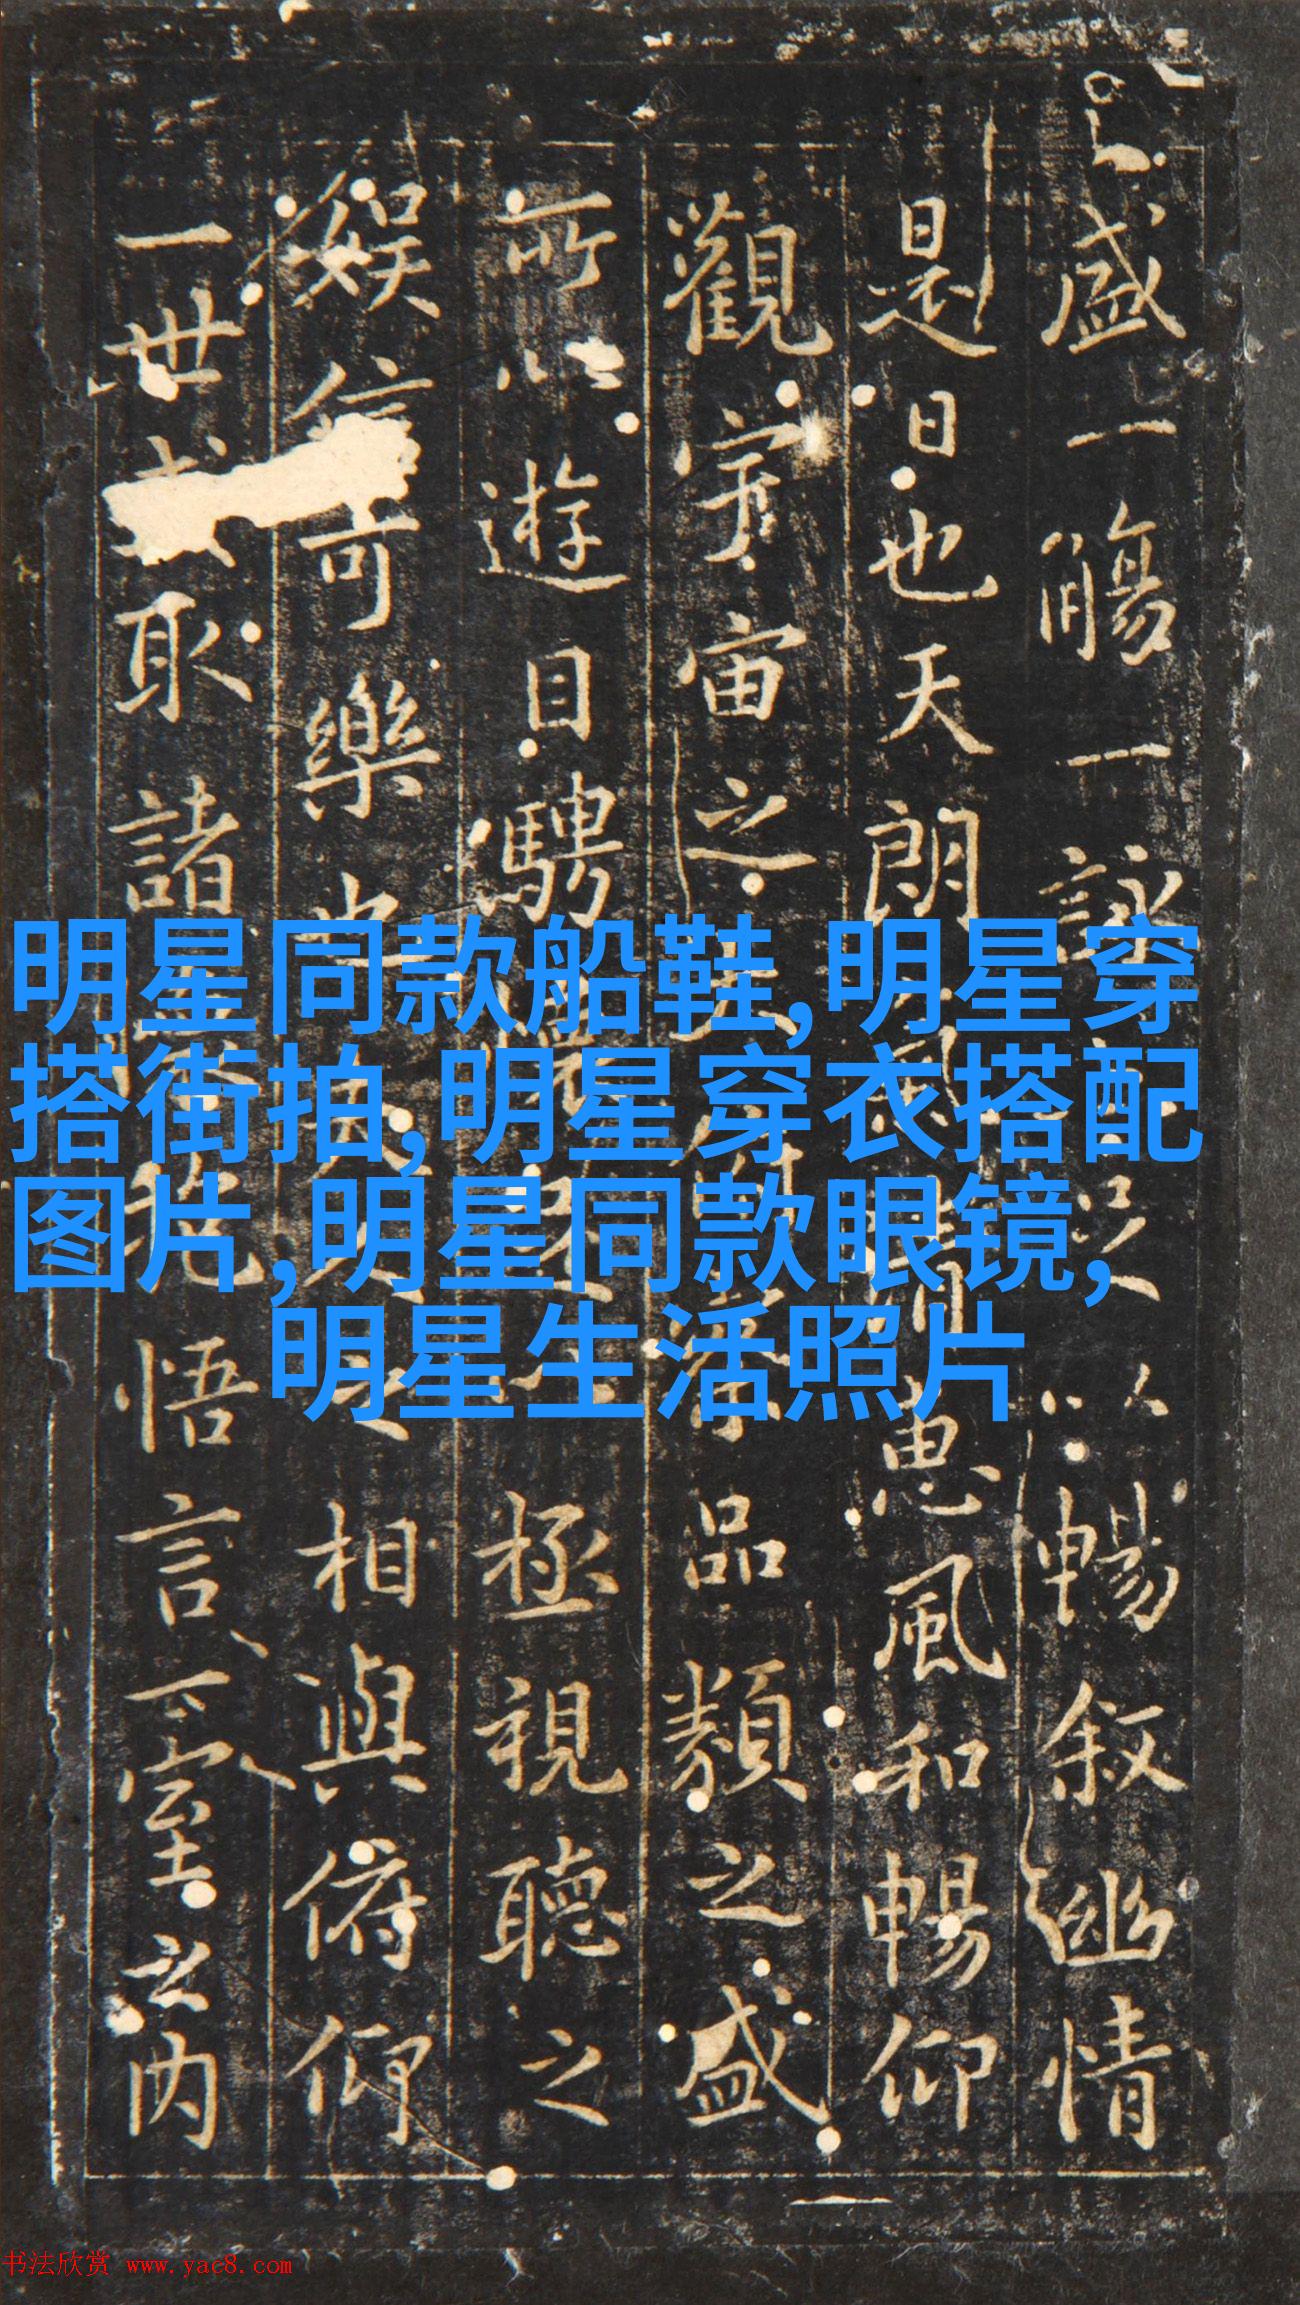 盛一觴一詠足以暢叙幽情
是日也天朗清惠風和暢仰
觀宇宙之大察品類之盛
所以遊目騁懷足以極視聽之
娛信可樂也夫人之相與俯仰
一世或取諸抱悟言一室之內
明星同款船鞋,明星穿
搭街拍,明星穿衣搭配
图片,明星同款眼镜,
明星生活照片
书法欣赏 www.yac8.com